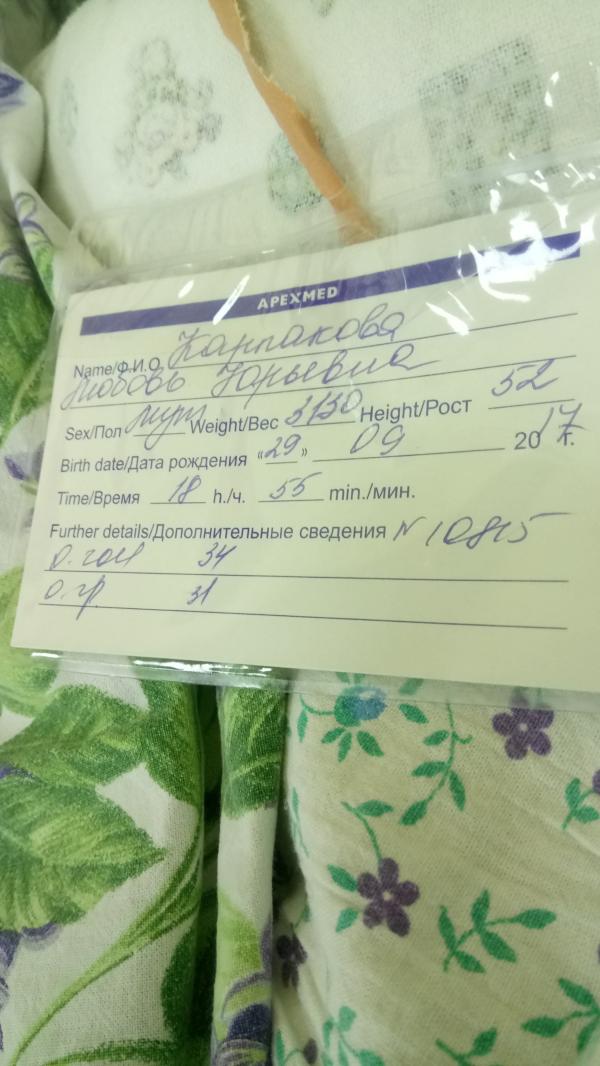 APEXMED
Name/Ф.И.О Карпакова
Любовь Юрьевна
Sex/Пол муж Weight/Вес 3130 Height/Рост 52
Birth date/Дата рождения «29» 09 2017 г.
Time/Время 18 h./ч. 55 min./мин.
Further details/Дополнительные сведения N 10815
О. гол 34
О. гр. 31